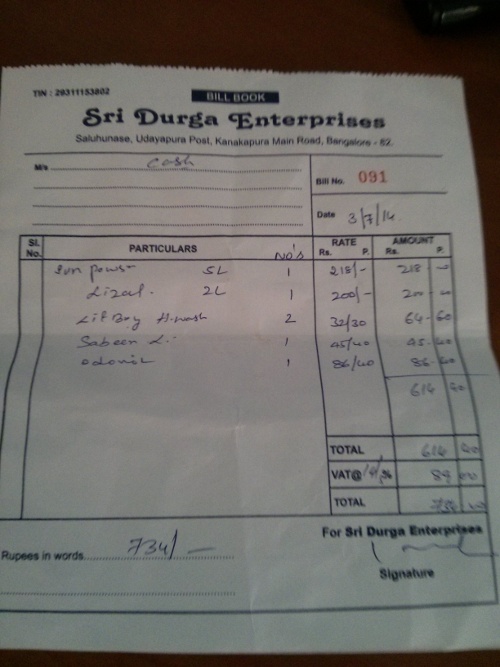 TIN : 29311153802
BILL BOOK
Sri Durga Enterprises
Saluhunase, Udayapura Post, Kanakapura Main Road, Bangalore - 62.
M/s cash
Bill No. 091
Date 3/7/14
Sl. No. PARTICULARS No's RATE Rs. P. AMOUNT Rs. P.
5L 1 218/- 218
Lizol. 2L 1 200/- 200
Lif Boy H.wash 2 32/30 64-60
Sabeen 1 45/40 45-40
odonil 1 86/40 86-40
614 40
TOTAL 614 40
VAT@ %
TOTAL
For Sri Durga Enterprises
Rupees in words 734/-
Signature